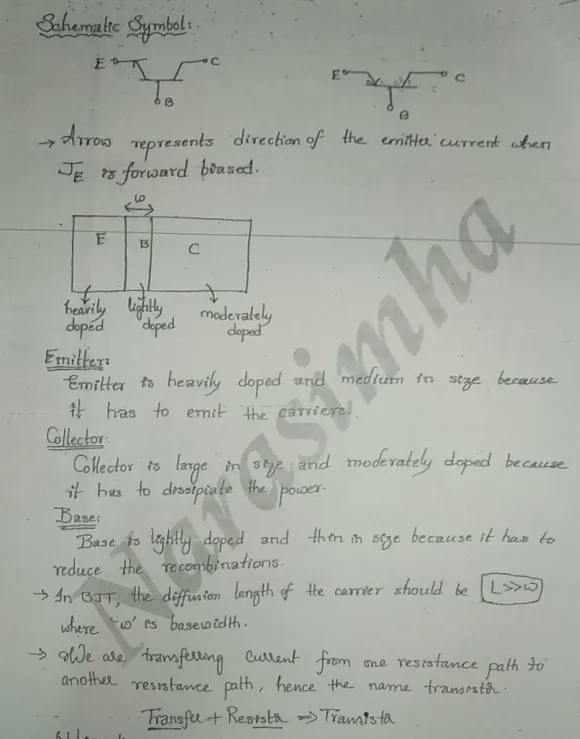 Schematic Symbol:
E C E C
B B
→ Arrow represents direction of the emitter current when
JE is forward biased.
ω
E B C
heavily doped lightly doped moderately doped
Emitter:
Emitter is heavily doped and medium in size because
it has to emit the carriers.
Collector.
Collector is large in size and moderately doped because
it has to dissipiate the power.
Base:
Base is lightly doped and thin in size because it has to
reduce the recombinations.
→ In BJT, the diffusion length of the carrier should be L>>ω
where 'ω' is basewidth.
→ We are transferring current from one resistance path to
another resistance path, hence the name transistor.
Transfer + Resistor ⇒ Transistor
Narasimha